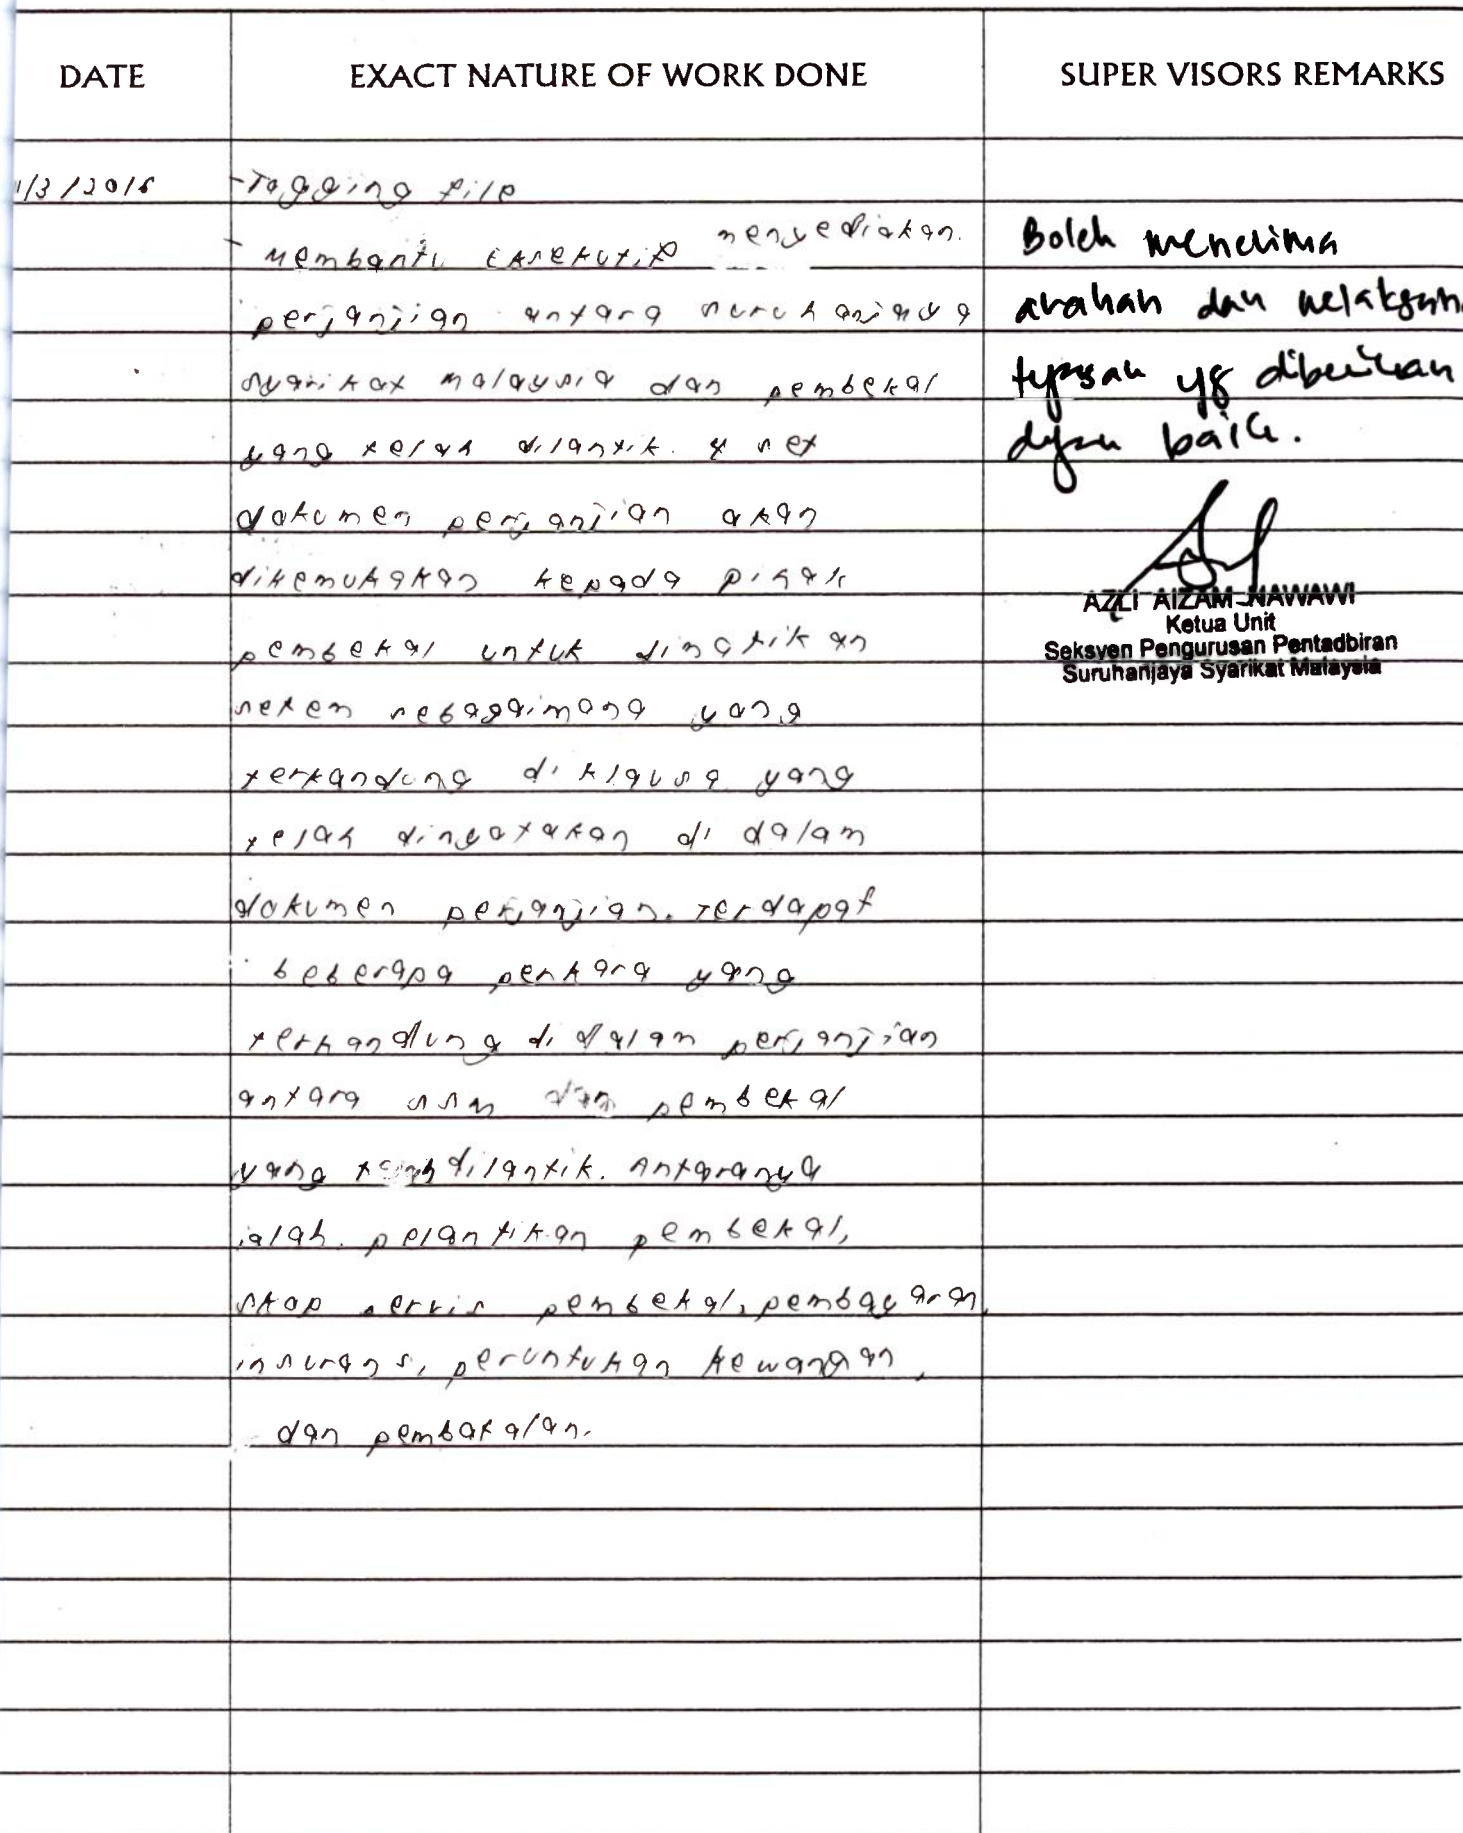 DATE
EXACT NATURE OF WORK DONE
SUPER VISORS REMARKS
1/3/2016
- Tagging file
- Membantu Eksekutif menyediakan
perjanjian antara suruhanjaya
syarikat malaysia dan pembekal
yang telah dilantik. 4 set
dokumen perjanjian akan
dikemukakan kepada pihak
pembekal untuk dimatikan
setem sebagaimana yang
terkandung di klausa yang
telah dinyatakan di dalam
dokumen perjanjian. Terdapat
beberapa perkara yang
terkandung di dalam perjanjian
antara ssm dan pembekal
yang telah dilantik. Antaranya
ialah pelantikan pembekal,
skop servis pembekal, pembayaran,
insurans, peruntukan kewangan,
dan pembakalan.
Boleh menerima
arahan dan melaksan
tugasan yg diberikan
dgn baik.
AZLI AIZAM NAWAWI
Ketua Unit
Seksyen Pengurusan Pentadbiran
Suruhanjaya Syarikat Malaysia